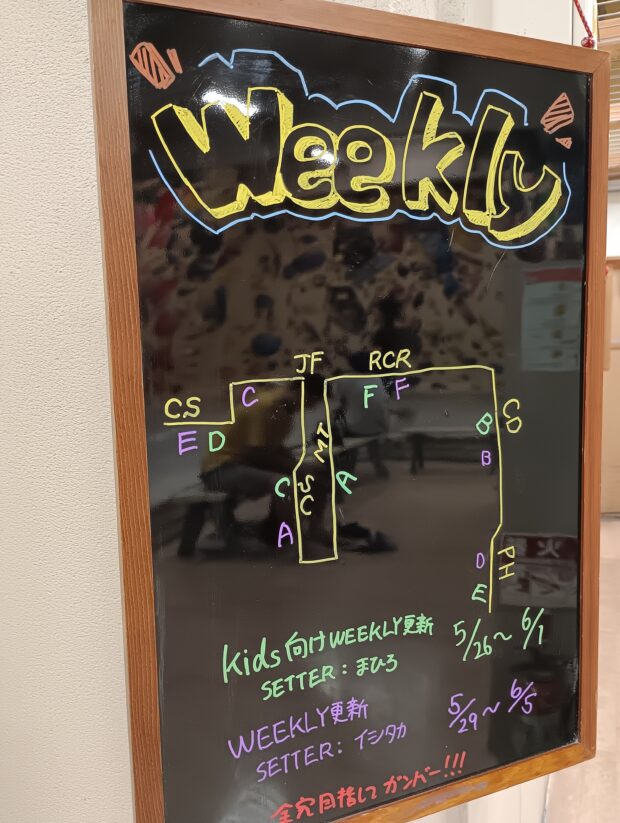 Weekly
JF
RCR
CS
C
F F
E D
TM
B
CD
B
C
SC
A
A
D
RH
E
Kids向けWEEKLY更新 5/26〜6/1
SETTER：まひろ
WEEKLY更新 5/29〜6/5
SETTER：イシタカ
全完目指してガンバー!!!